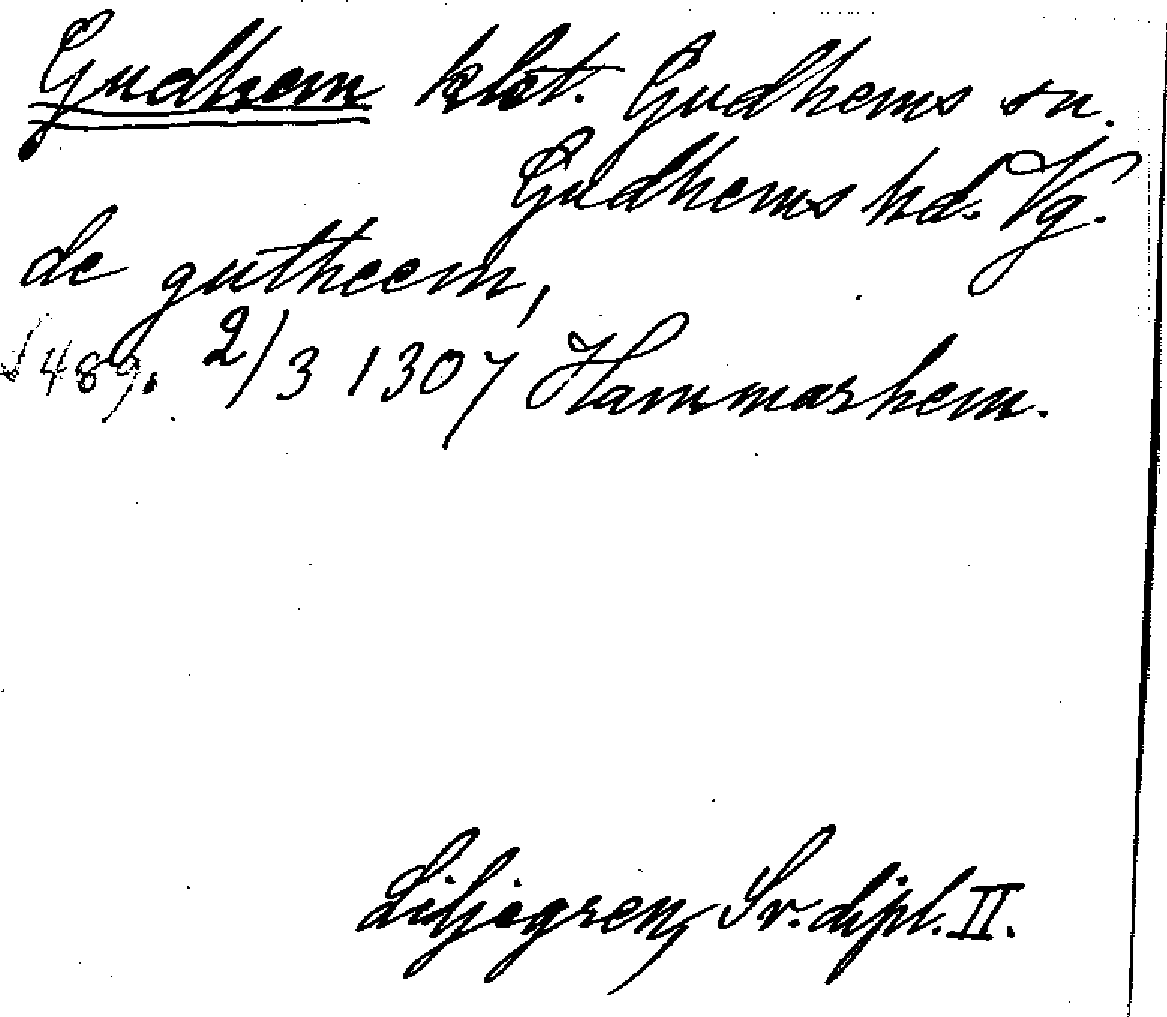 Gudhem klst. Gudhems sn.
Gudhems hd. Vg.
de gutheem,
s 489. 2/3 1307 Hammarhem.
Liljegren, Sv. dipl. II.